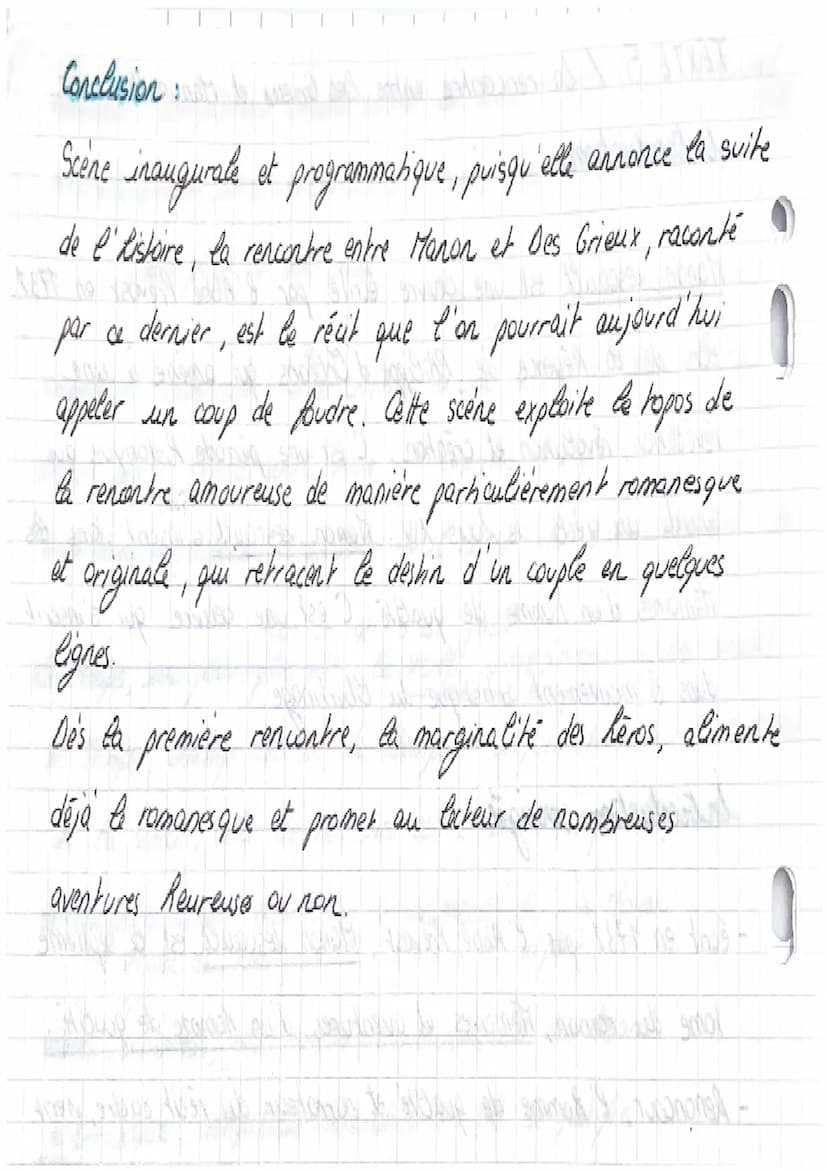 Conclusion :
Scène inaugurale et programmatique, puisqu'elle annonce la suite
de l'histoire, la rencontre entre Manon et Des Grieux, raconté
par ce dernier, est le récit que l'on pourrait aujourd'hui
appeler un coup de foudre. Cette scène exploite le topos de
la renontre amoureuse de manière particulièrement romanesque
et originale, qui retracent le destin d'un couple en quelques
lignes.
Dès la première rencontre, la marginalité des héros, alimente
déjà le romanesque et promet au lecteur de nombreuses
aventures heureuses ou non.